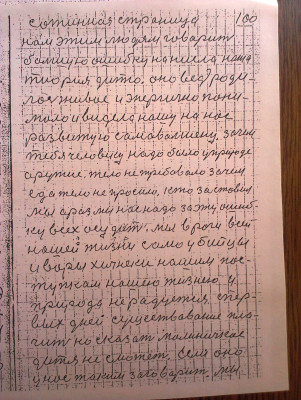 сотинная страница 100
нам этим людям говарит
балшую ошибку нанесла наша
теория дитю, оно ведь роди-
лось живые и энергично пони-
мало и видело нашу на нас
развитую самаволшену. зачем
тебя человеку надо было у природе
аружие, тело не требовало зачем
еда тело не просили, кто заставил
мы аразмы нас надо за эту ошиб-
ку всех осудит. мы враги всей
нашей жизни само убейцы
и воры хичники нашим пос-
тупкам нашею тизнею и
природа нерадуется с пер-
вых дней существование пла-
чит но сказат малиничкае
дитя не сможет. если оно
у нас таким заговарит. мы